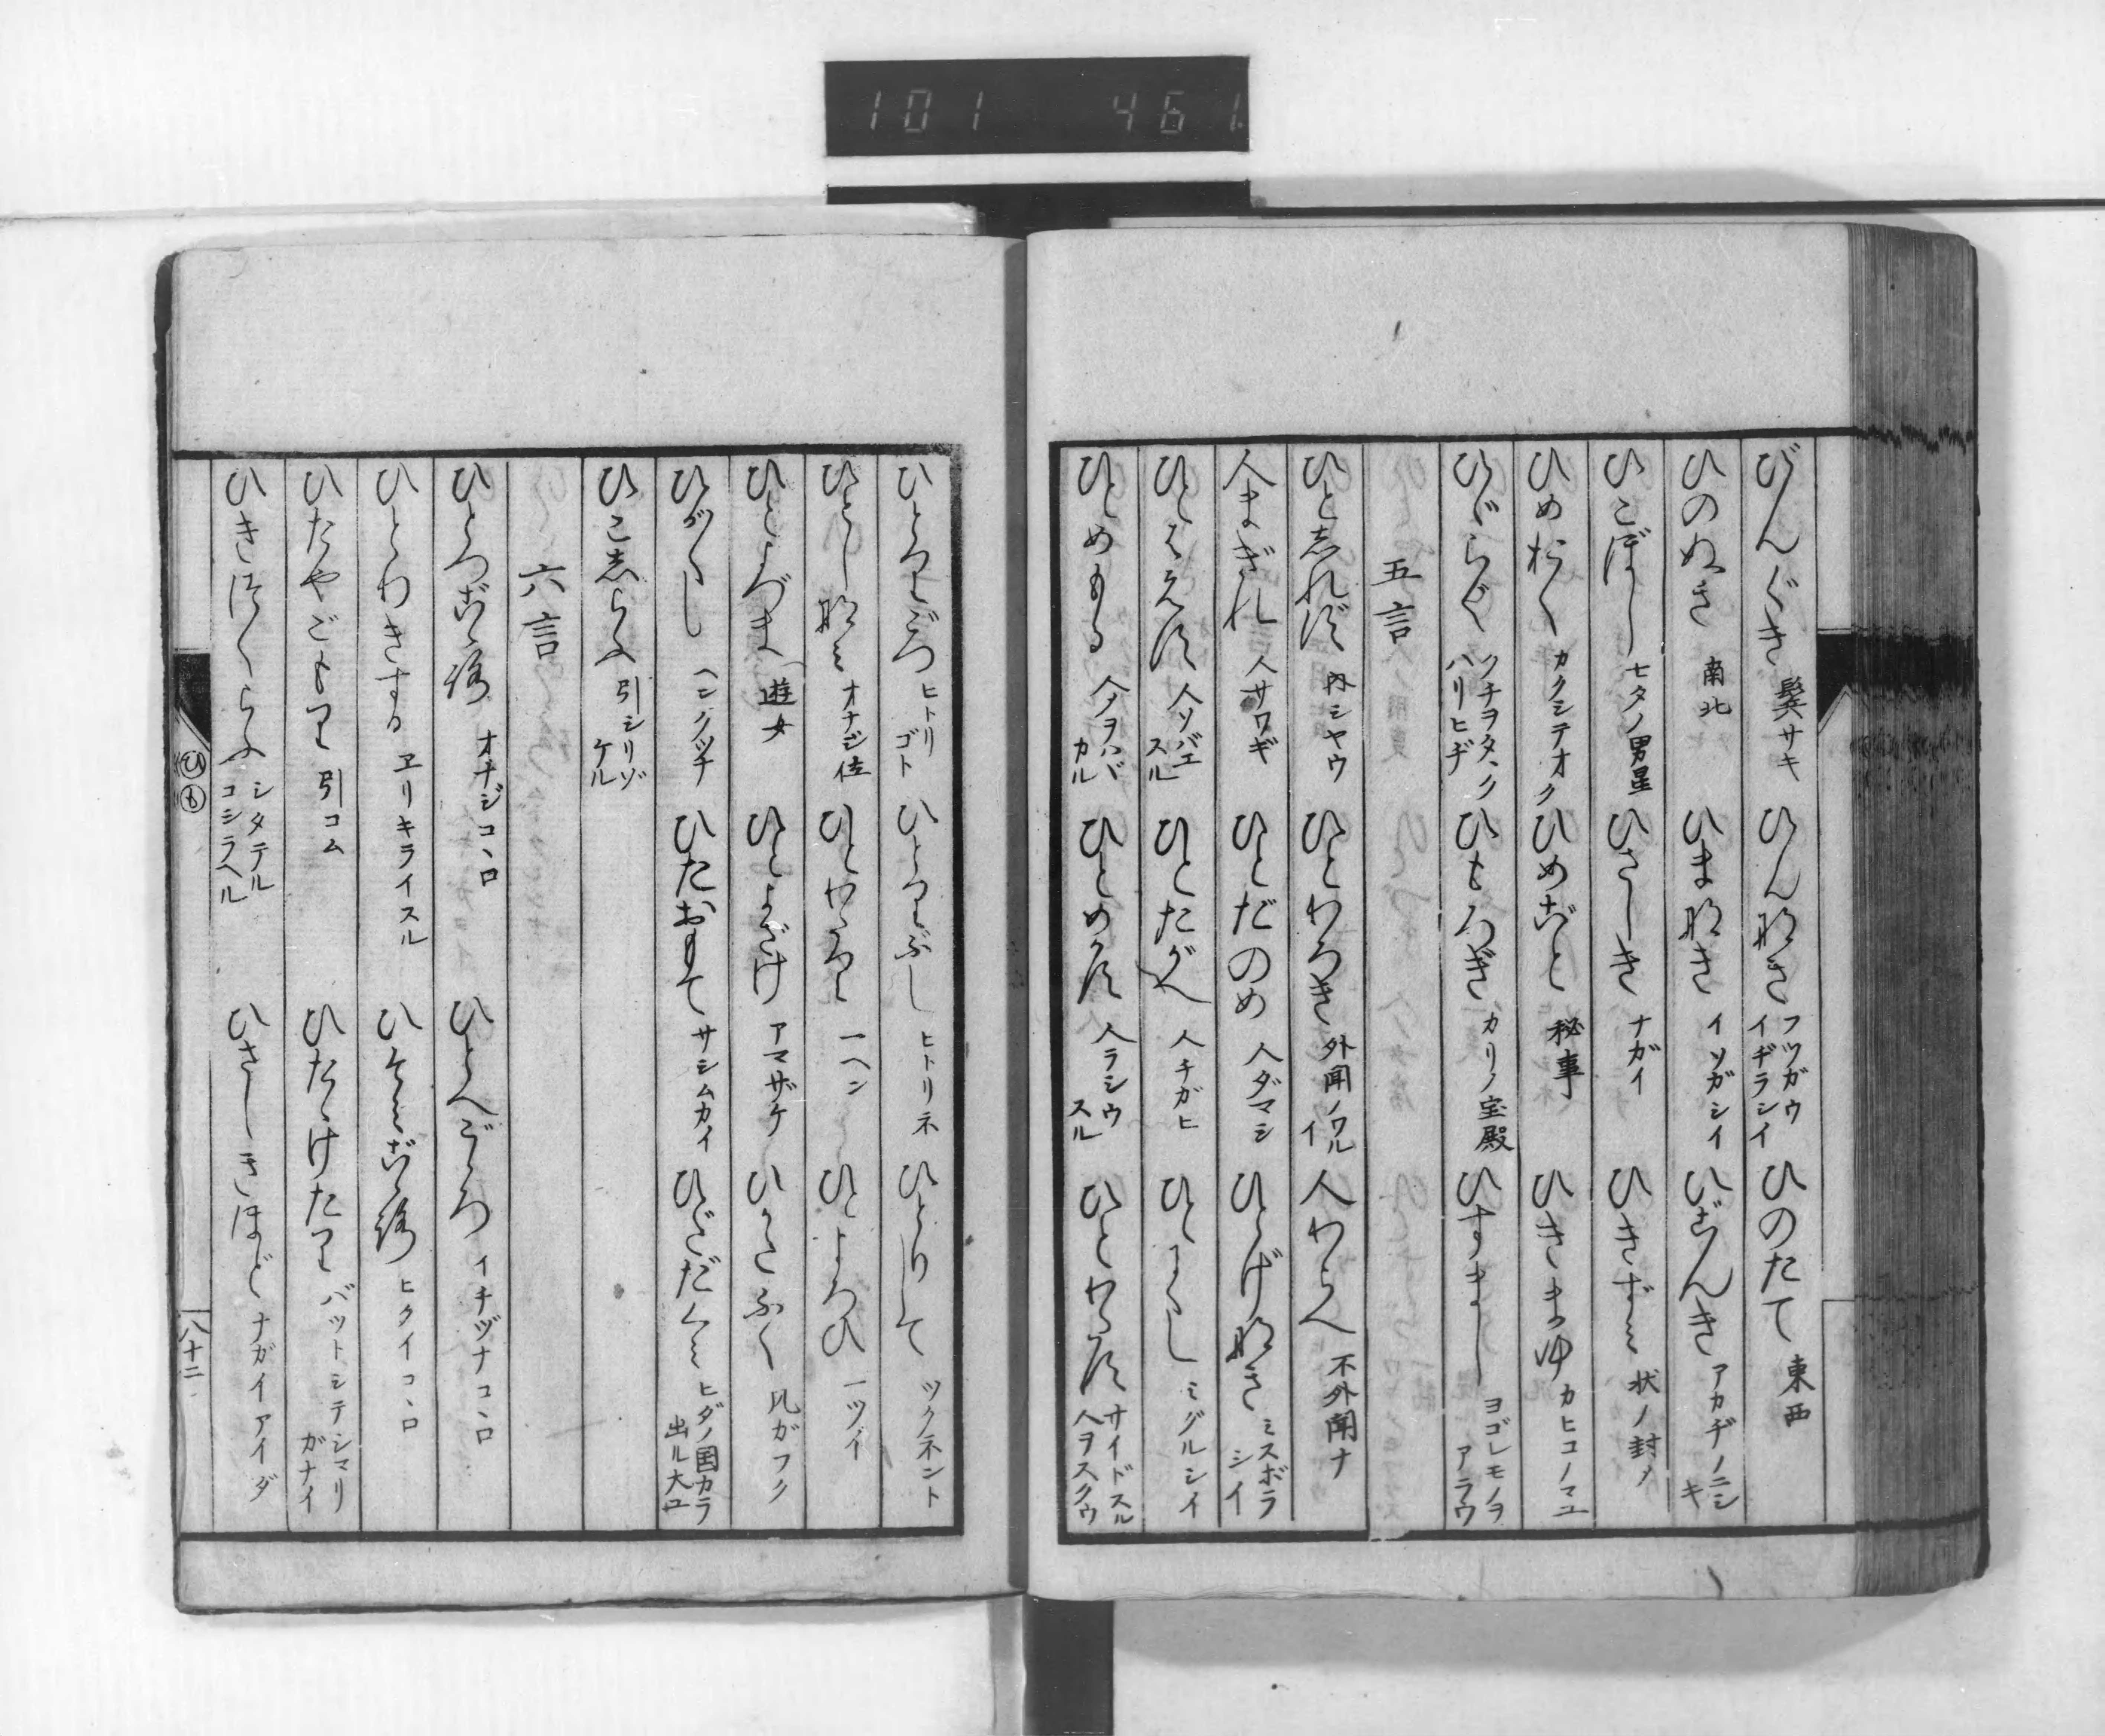 101 461
びんぐき 鬂サキ ひん那き フツガウ イヂラシイ ひのたて 東西
ひのぬき 南北 ひま那き イソガシイ ひごんき アカヂノニシキ
ひこぼし 七タノ男星 ひさしき ナガイ ひきずミ 状ノ封〆
ひめおく カクシテオク ひめごと 秘事 ひきまゆ カヒコノマユ
ひぢらく ツチヲタヽク ハリヒヂ ひもろぎ カリノ宝殿 ひすまし ヨゴレモノヲアラウ
五言
ひと志れず 内シヤウ ひとわろき 外聞ノワルイ 人わらへ 不外聞ナ
人まぎれ 人サワギ ひとだのめ 人ダマシ ひとげ那き ミスボラシイ
ひとばえす 人ソバエスル ひとたがへ 人チガヒ ミグルシイ
ひとめもる 人メヲハバカル ひとめかす 人ラシウスル ひとわたす サイドスル 人ヲスクウ
ひとりごつ ヒトリゴト ひとりぶし ヒトリネ ひとりして ツクネント
ひとし那ミ オナジ位 ひとわたり 一ヘン ひとよろひ 一ツイ
ひとよづま 遊女 ひとよざけ アマザケ ひかたふく 風ガフク
ひがくし ヘンクツナ ひたおもて サシムカイ ひだだくミ ヒダノ国カラ出ル大工
ひこ志らふ 引シリゾケル
六言
ひとつごゝ路 オナジコヽロ ひとへごゝろ イチヅナコヽロ
ひとわきする ヱリキライスル ひくミごゝ路 ヒクイコヽロ
ひたやごもり 引コム ひたゝけたり バツトシテシマリガナイ
ひきつくらふ シタテル コシラヘル ひさしきほど ナガイアイダ
ひ も
八十二